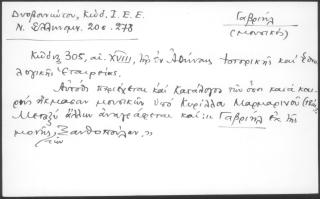 Δυοβουνιώτου, Κώδ. Ι. Ε. Ε.
Ν. Ἑλληνομν. 20σ. 278
Γαβριήλ
(μουσικός)
Κώδιξ 305, αἰ. XVIII, τῆς ἐν Ἀθήναις Ἱστορικῆς καὶ Ἐθνο
λογικῆς Ἑταιρείας.
Αὐτόθι περιέχεται καὶ κατάλογος τῶν ὅσοι κατὰ και
ροὺς ἤκμασαν μουσικῶν ὑπὸ Κυρίλλου Μαρμαρινοῦ
Μεταξὺ ἄλλων ἀναγράφεται καὶ: « Γαβριὴλ ἐκ τῆς
μονῆς τῶν Ξανθοπούλων. »